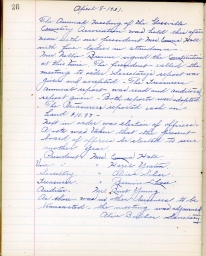 26
April 8 - 1951.
The Annual meeting of the
Cemetery Association was held this after
noon with our President Mrs. Emma Hale
with five ladies in attendance.
Mrs. Nellie signed the constitution
at this time. The President called the
meeting to order. Secretary's report was
given and accepted. The Treasurer's
annual report was read and
Both reports were adopted.
The Treasurer reported cash in
hand $
Next in order was election of officers.
A vote was taken that the present
board of officers be elected to serve
another year.
President - Mrs. Emma Hale
Vice " - " Hazel
Secretary " Alice
Treasurer "
Auditor Mrs. Young
As there was no other business to be
transacted the meeting was adjourned
Alice B. Secretary